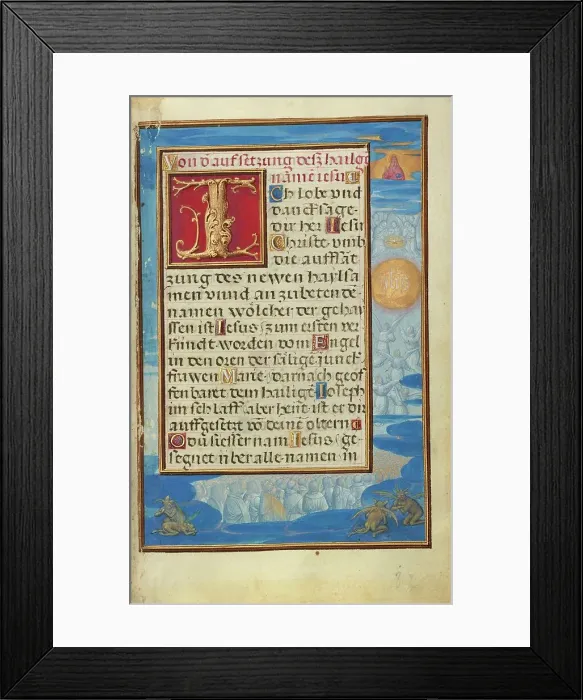 Von d̄ aufsetzung desz hailgē
namē iesu
ICh lobe vnd
danncksage-
dir her Iesu
Christe vmb
die auffsāt
zung des newen haylsa
men vnnd anzubetendē
namen wölcher der gehay
ssen ist Iesus/zum ersten ver
kundt worden vom Engel
in den oren der sälige junck
frawen Marie/darnach geof
fenbaret dem hailigē Ioseph
im schlaff/aber heut ist er dir
auffgesetzt vō deinē oltern
O du suesser nam Iesus/ge-
segnet vber alle namen in